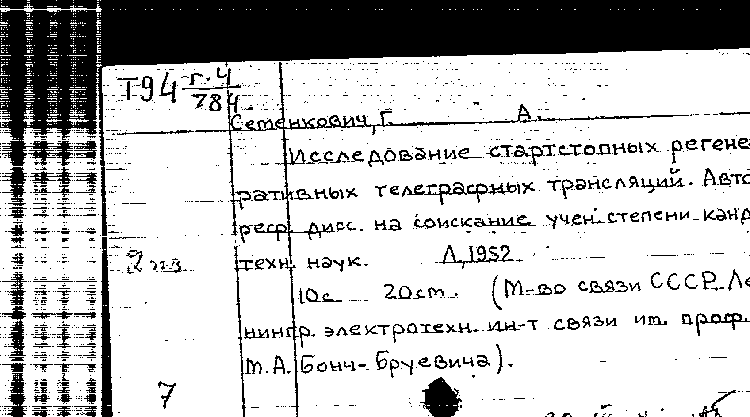 Т94 г.4
784
Сетенкович, Г. А.
Исследование стартстопных регене-
ративных телеграфных трансляций. Авто-
реф. дисс. на соискание учен. степени канд.
2 экз техн. наук. Л, 1952
10с 20ст. (М-во связи СССР. Ле-
нингр. электротехн. ин-т связи им. проф.
М.А. Бонч-Бруевича).
7